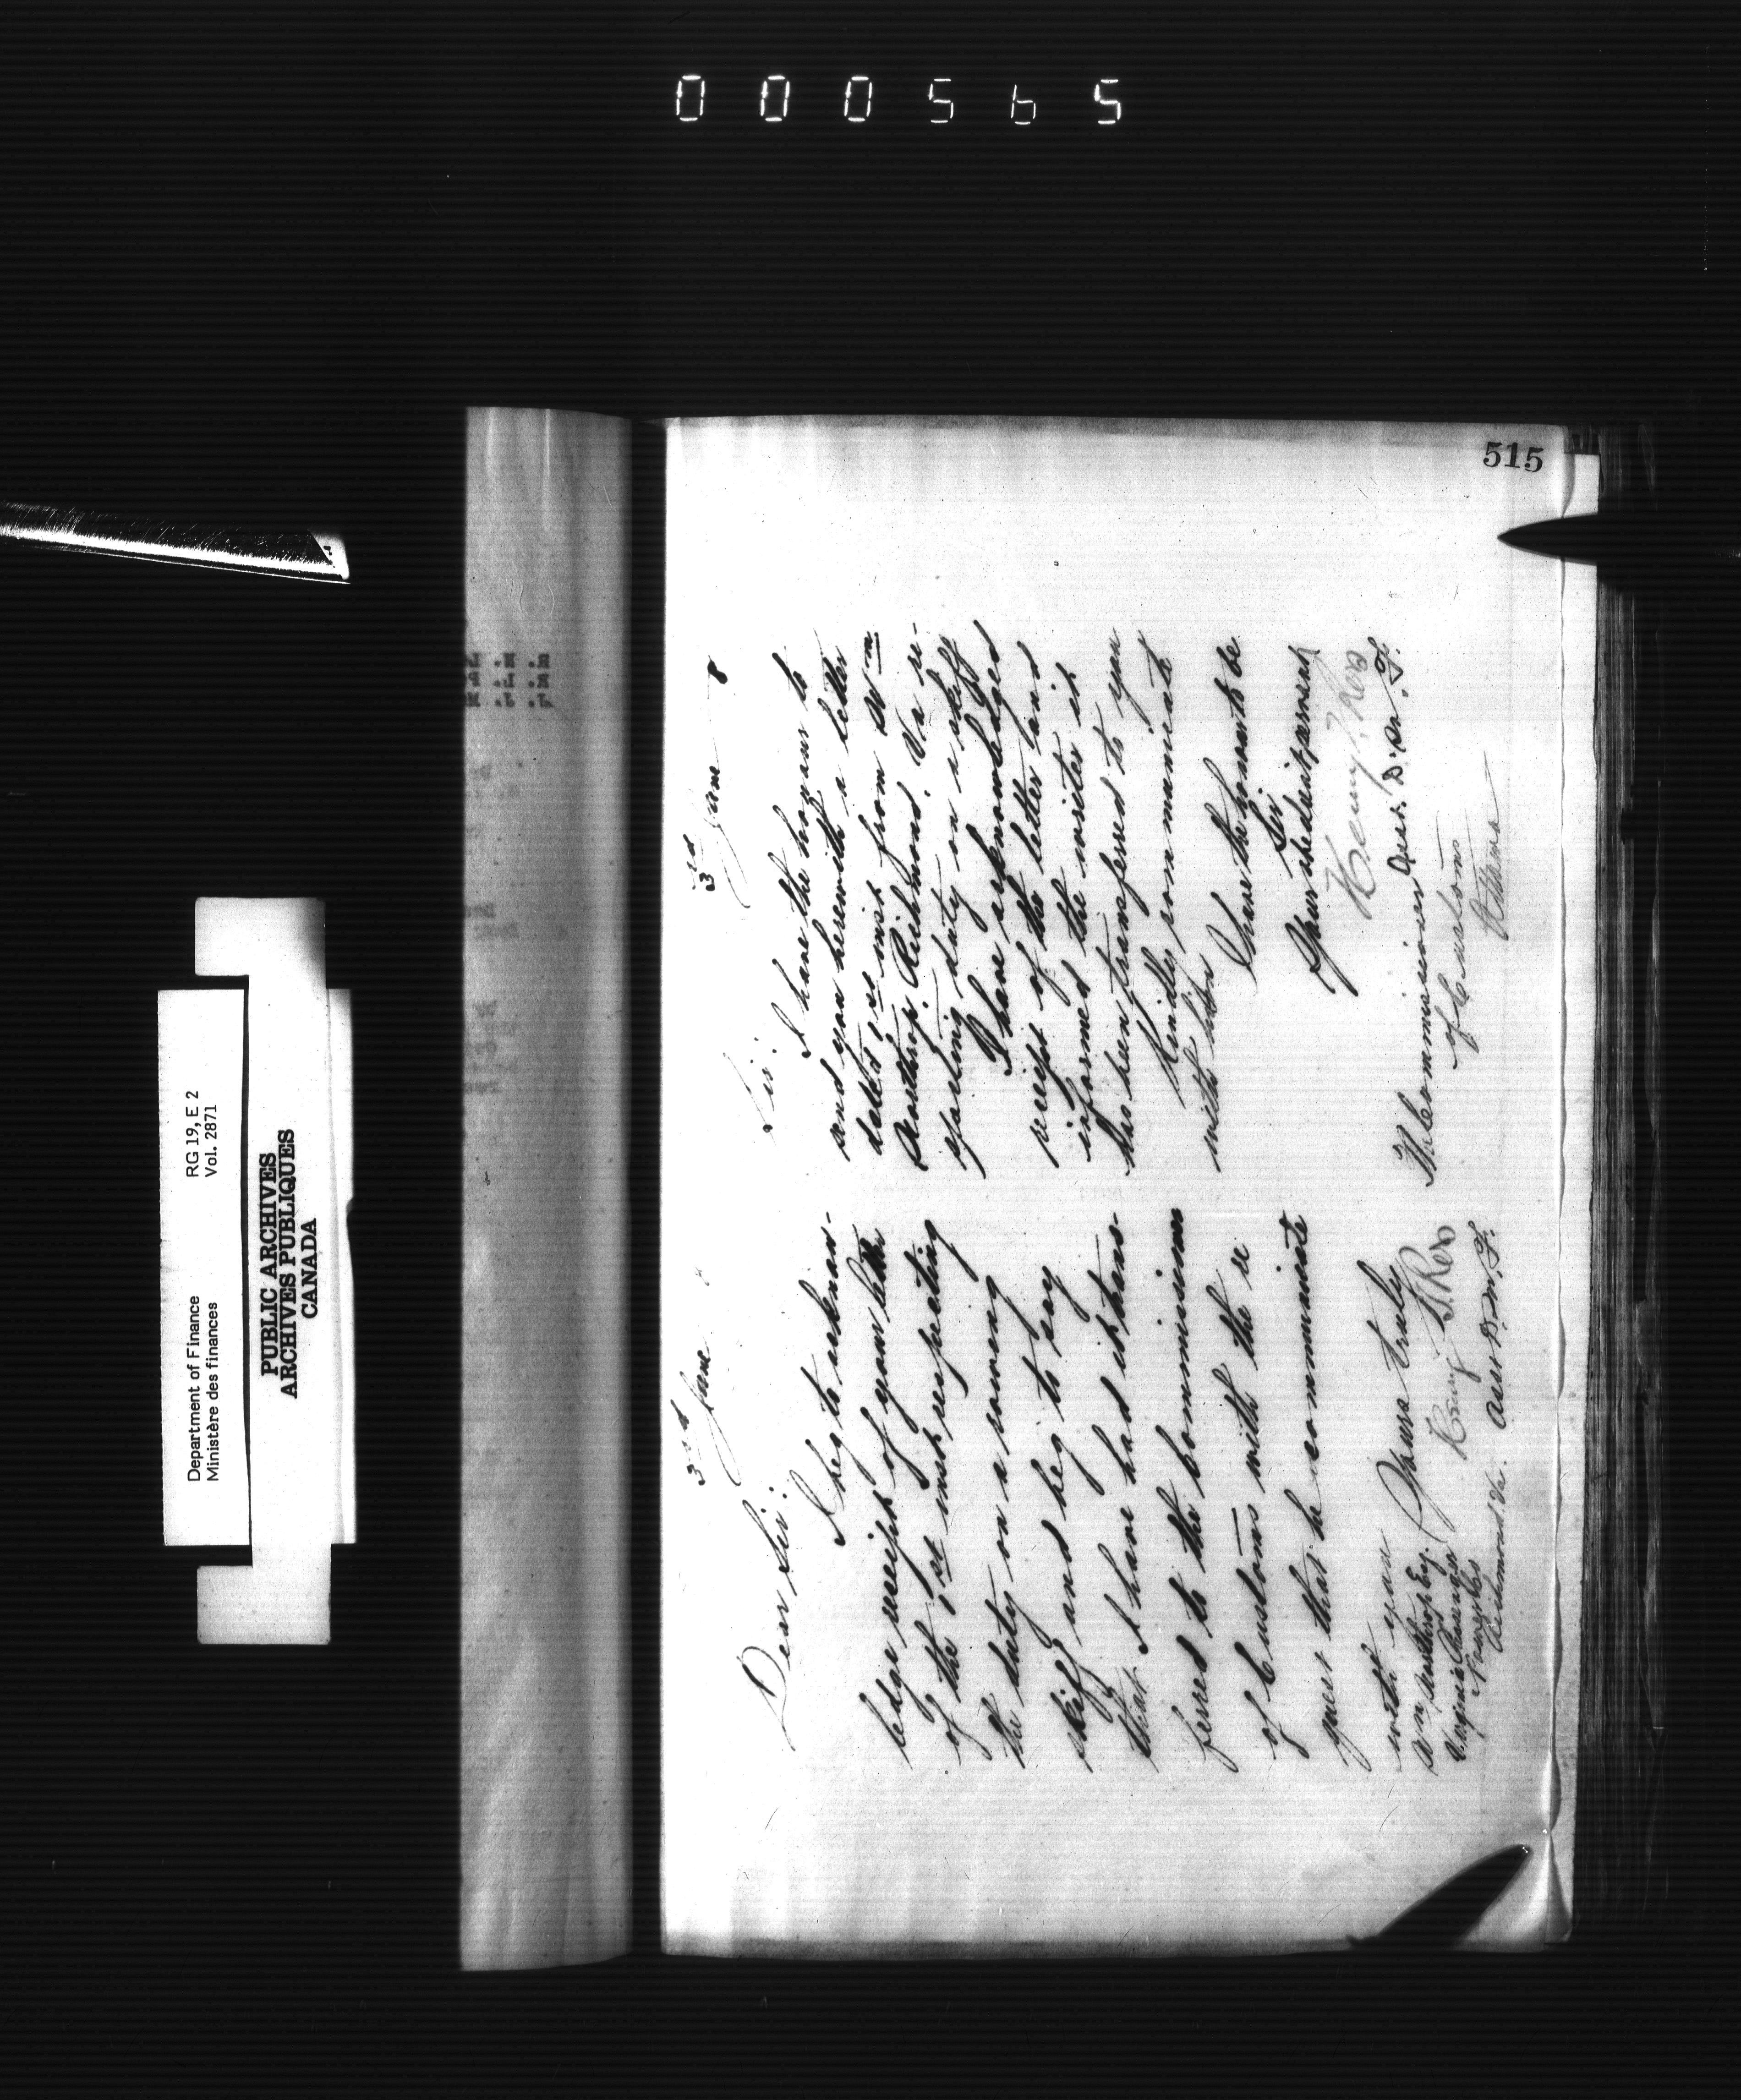 000565
515
Department of Finance
Ministère des finances
RG 19, E 2
Vol. 2871
PUBLIC ARCHIVES
ARCHIVES PUBLIQUES
CANADA
3rd June
Dear Sir:
I beg to acknow-
ledge receipt of your letter
of the 1st inst respecting
the duty on a rowing
skiff and beg to say
that I have had it trans-
ferred to the Commissioner
of Customs with the re
quest that he communicate
with you
Yours truly
Henry T. Ross
Asst D.M.F.
Wm Northrop Esq.
Virginia Passenger
Richmond Va.
3rd June 8
Sir:
I have the honour to
send you herewith a letter
dated 1st inst from Wm
Northrop, Richmond, Va re-
specting duty on a skiff
I have acknowledged
receipt of the letter and
informed the writer it
has been transferred to you
Kindly communicate
with him
I have the honour to be
Sir
Your obedient servant
Henry T. Ross
Asst. D.M.F.
The Commissioner
of Customs
Ottawa